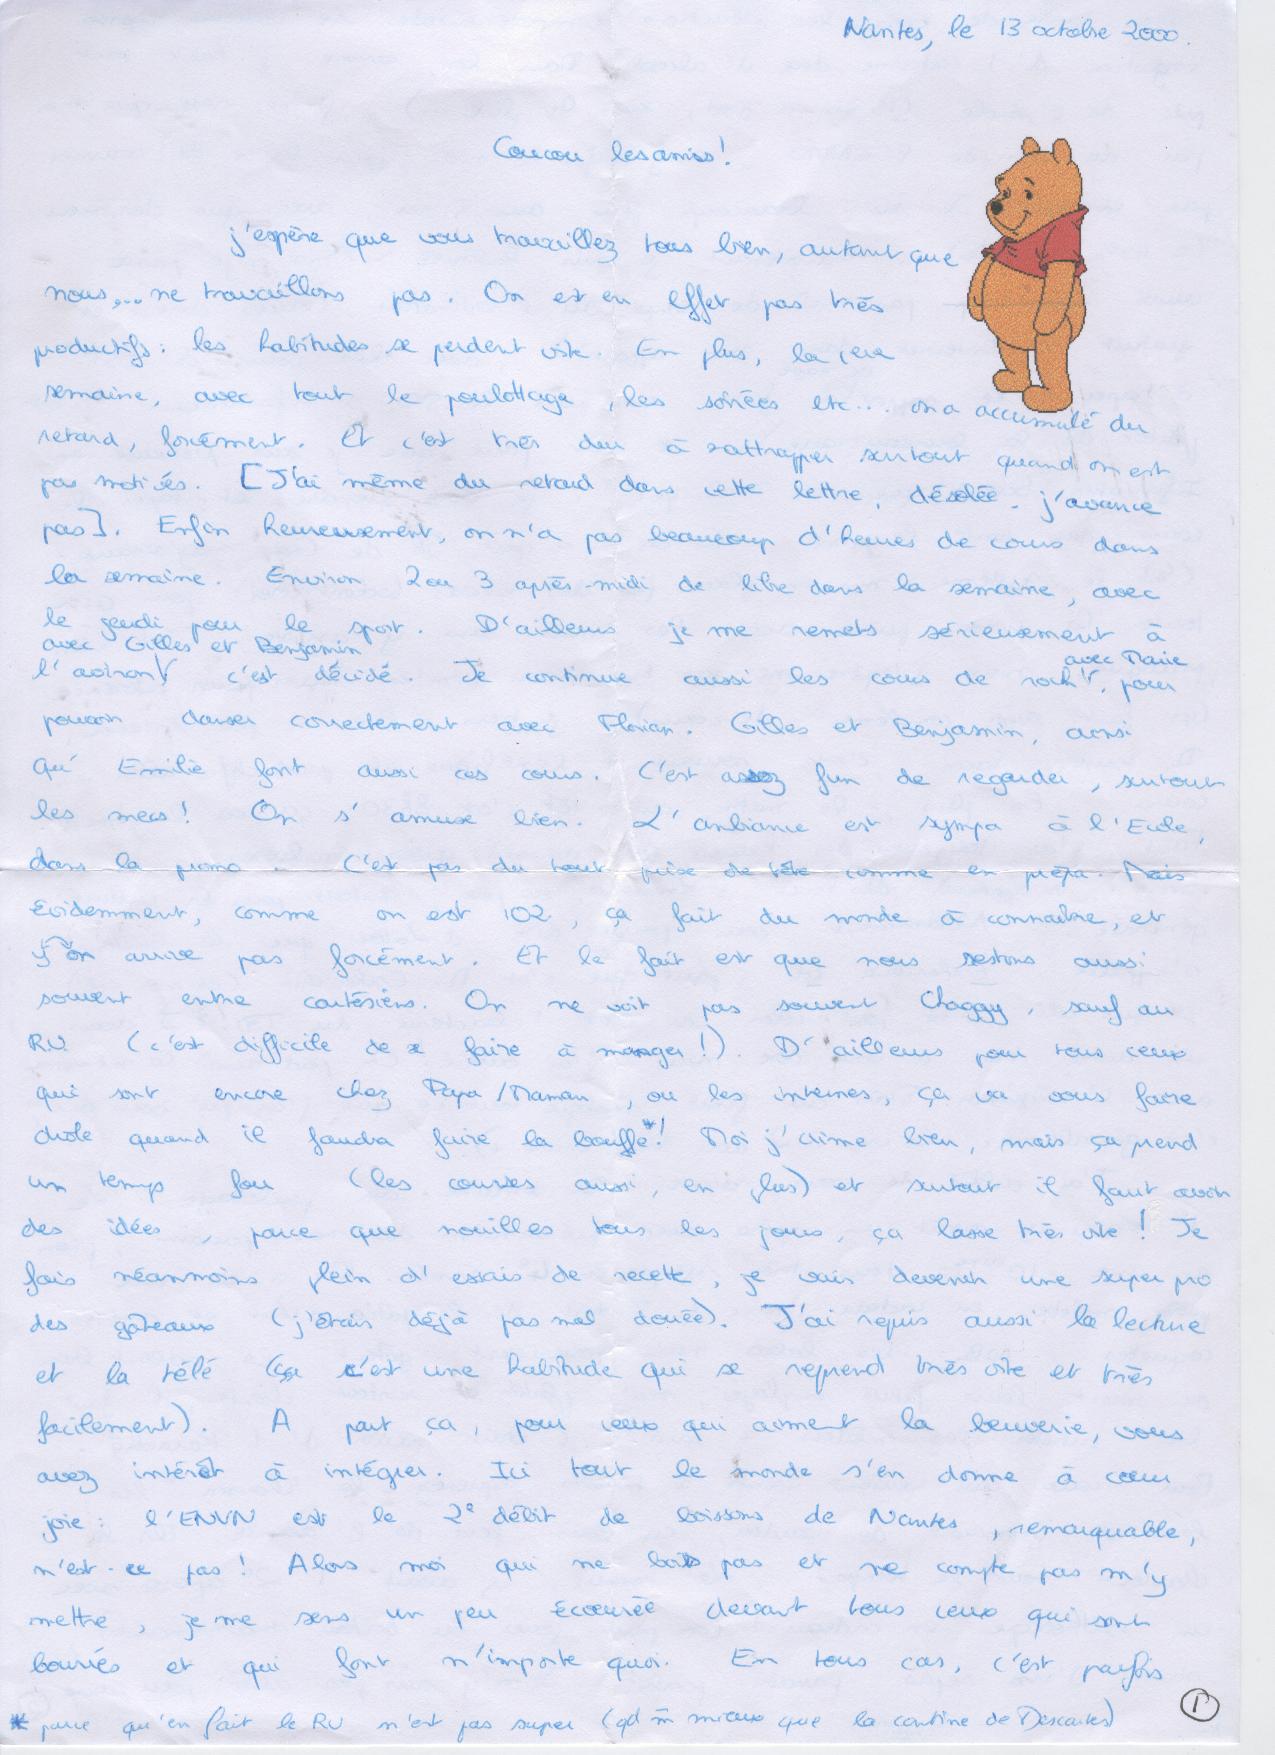 Nantes, le 13 octobre 2000.
Coucou les amiss!
j'espère que vous travaillez tous bien, autant que
nous,... ne travaillons pas. On est en effet pas très
productifs : les habitudes se perdent vite. En plus, la 1ère
semaine, avec tout le poulottage, les soirées etc... on a accumulé du
retard, forcément. Et c'est très dur à rattrapper surtout quand on est
pas motivés. [J'ai même du retard dans cette lettre, désolée. j'avance
pas]. Enfin heureusement, on n'a pas beaucoup d'heures de cours dans
la semaine. Environ 2 ou 3 après-midi de libre dans la semaine, avec
le jeudi pour le sport. D'ailleurs je me remets sérieusement à
avec Gilles et Benjamin
avec Marie
l'aviron c'est décidé. Je continue aussi les cours de rock, pour
pouvoir danser correctement avec Florian. Gilles et Benjamin, ainsi
qu' Emilie font aussi ces cours. C'est assez fun de regarder, surtout
les mecs! On s'amuse bien. L'ambiance est sympa à l'Ecole,
dans la promo. C'est pas du tout prise de tête comme en prépa. Mais
Evidemment, comme on est 102, ça fait du monde à connaître, et
on y arrive pas forcément. Et le fait est que nous restons aussi
souvent entre cartésiens. On ne voit pas souvent Choggy, sauf au
R.U. (c'est difficile de se faire à manger!). D'ailleurs pour tous ceux
qui sont encore chez Papa/Maman, ou les internes, ça va vous faire
drôle quand il faudra faire la bouffe*! Moi j'aime bien, mais ça prend
un temps fou (les courses aussi, en plus) et surtout il faut avoir
des idées, parce que nouilles tous les jours, ça lasse très vite! Je
fais néanmoins plein d'essais de recette, je vais devenir une super pro
des gâteaux (j'étais déjà pas mal douée). J'ai repris aussi la lecture
et la télé (ça c'est une habitude qui se reprend très vite et très
facilement). A part ça, pour ceux qui aiment la beuverie, vous
avez intérêt à intégrer. Ici tout le monde s'en donne à cœur
joie : l'ENVN est le 2e débit de boissons de Nantes, remarquable,
n'est-ce pas! Alors moi qui ne bois pas et ne compte pas m'y
mettre, je me sens un peu écœurée devant tous ceux qui sont
bourrés et qui font n'importe quoi. En tous cas, c'est parfois
* parce qu'en fait le RU n'est pas super (qd m̂ mieux que la cantine de Descartes)
1